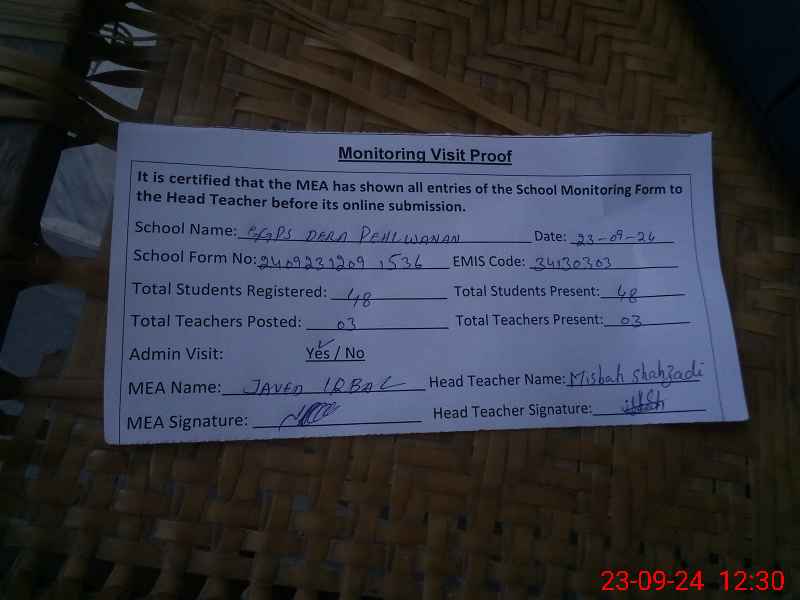 Monitoring Visit Proof
It is certified that the MEA has shown all entries of the School Monitoring Form to
the Head Teacher before its online submission.
School Name: GGPS DERA PEHLWANAN Date: 23-09-24
School Form No: 2409231209 1536 EMIS Code: 34130303
Total Students Registered: 48 Total Students Present: 48
Total Teachers Posted: 03 Total Teachers Present: 03
Admin Visit: Yes / No
MEA Name: JAVED IQBAL Head Teacher Name: Misbah Shahzadi
MEA Signature: Head Teacher Signature:
23-09-24 12:30